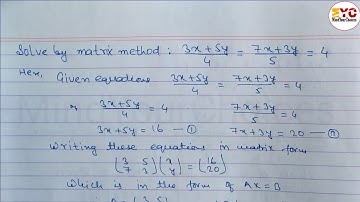 Solve by matrix method : 3x+5y/4 = 7x+3y/5 = 4
Here, Given equations 3x+5y/4 = 7x+3y/5 = 4
or 3x+5y/4 = 4 7x+3y/5 = 4
3x+5y = 16 — ① 7x+3y = 20 — ②
Writing these equations in matrix form
(3 5
7 3) (x
y) = (16
20)
Which is in the form of AX=B